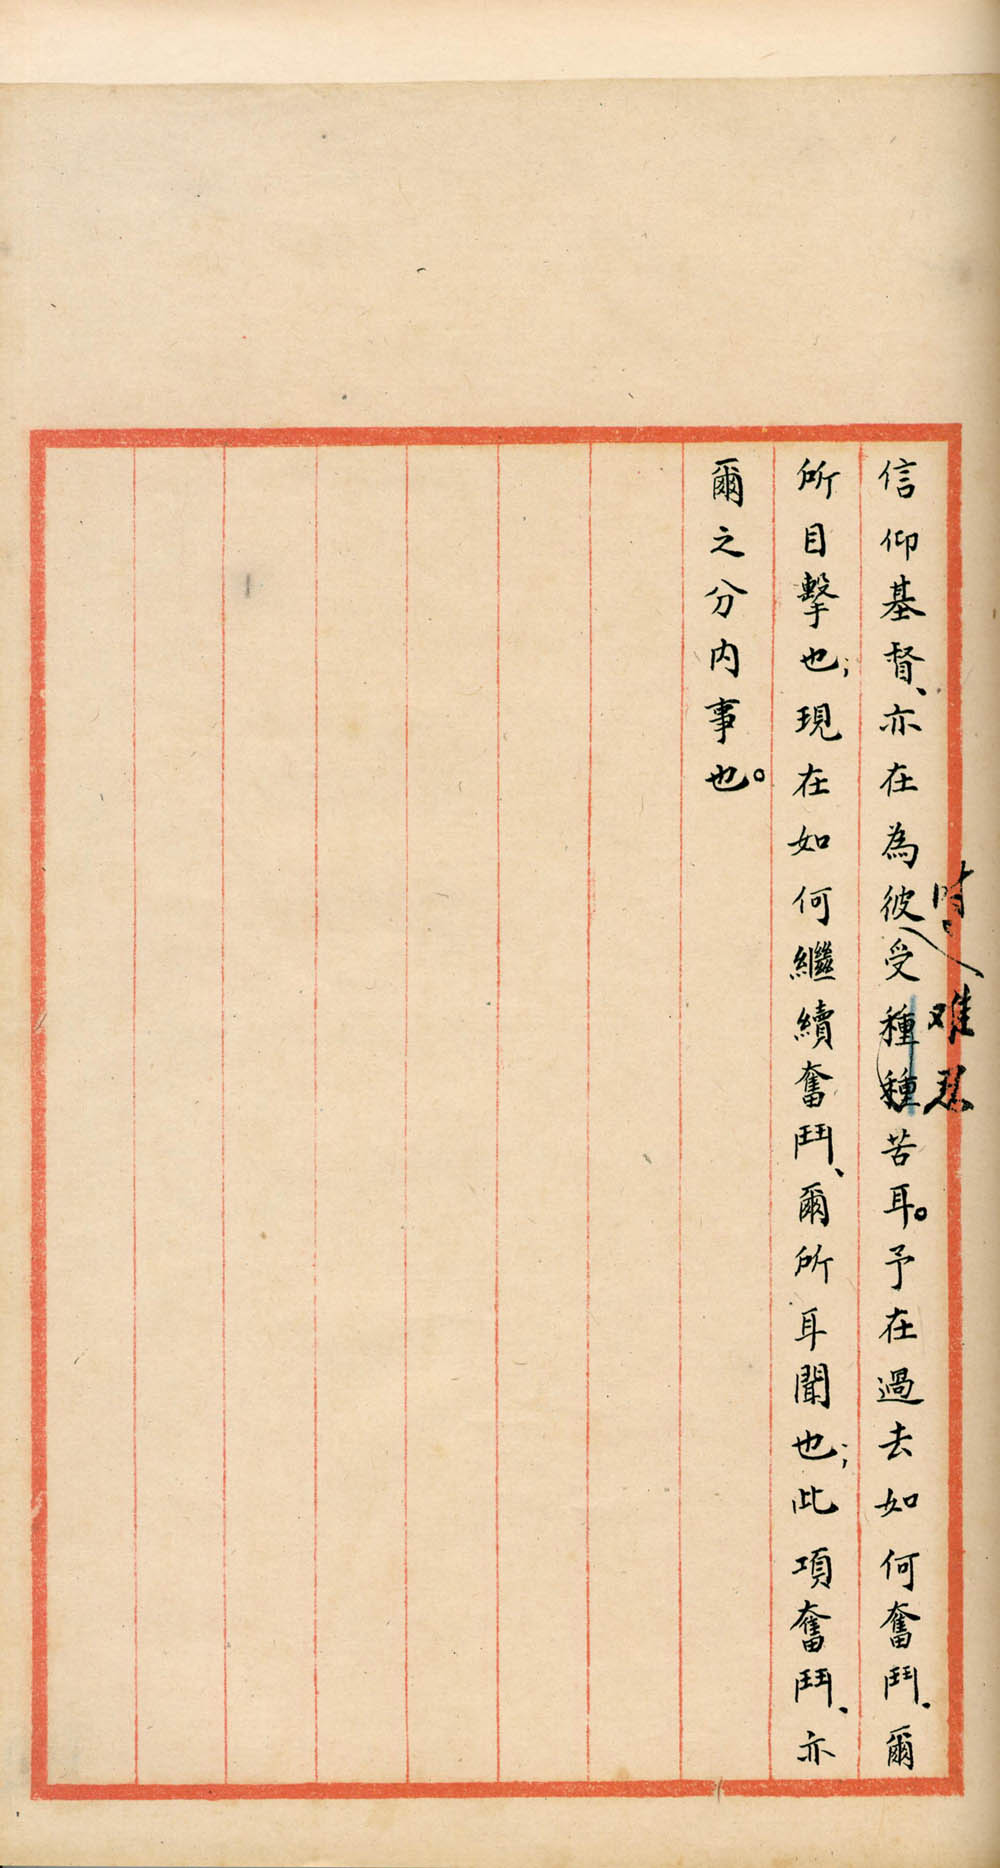 信仰基督、亦在為彼受種種苦耳。予在過去如何奮鬥、爾
时
难忍
所目擊也；現在如何繼續奮鬥、爾所耳聞也；此項奮鬥、亦
爾之分內事也。